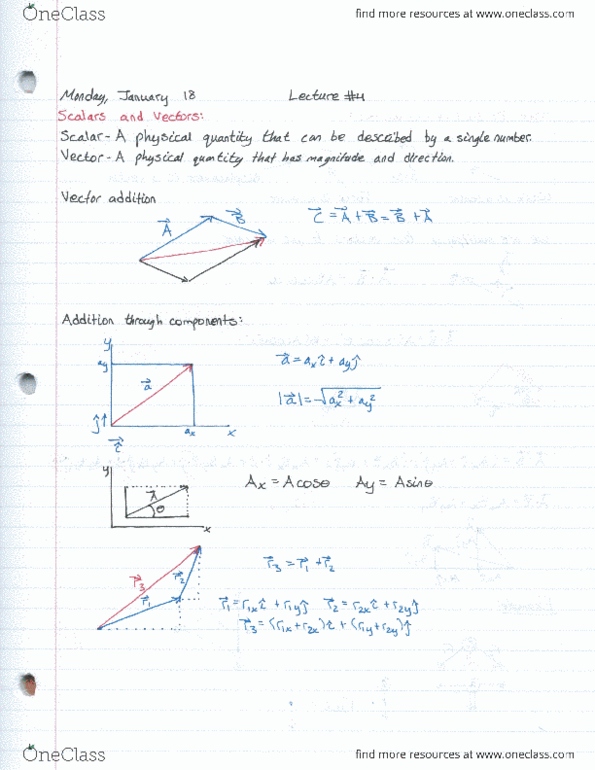 OneClass
find more resources at www.oneclass.com
Monday, January 18 Lecture #4
Scalars and Vectors:
Scalar - A physical quantity that can be described by a single number.
Vector - A physical quantity that has magnitude and direction.
Vector addition
A⃗ B⃗ C⃗ = A⃗ + B⃗ = B⃗ + A⃗
Addition through components:
y
ay
a⃗ a⃗ = axî + ayĵ
|a⃗| = √ax² + ay²
ĵ
ax x
î
y
A⃗ Ax = Acosθ Ay = Asinθ
θ
x
r⃗3 r⃗1 r⃗2 r⃗3 = r⃗1 + r⃗2
r⃗1 = r1xî + r1yĵ r⃗2 = r2xî + r2yĵ
r⃗3 = (r1x + r2x)î + (r1y + r2y)ĵ
OneClass
find more resources at www.oneclass.com